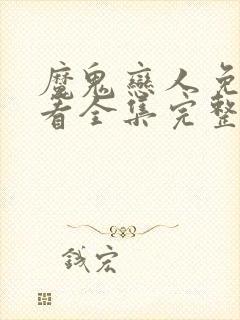 魔鬼戀人免
看全集完整
宏